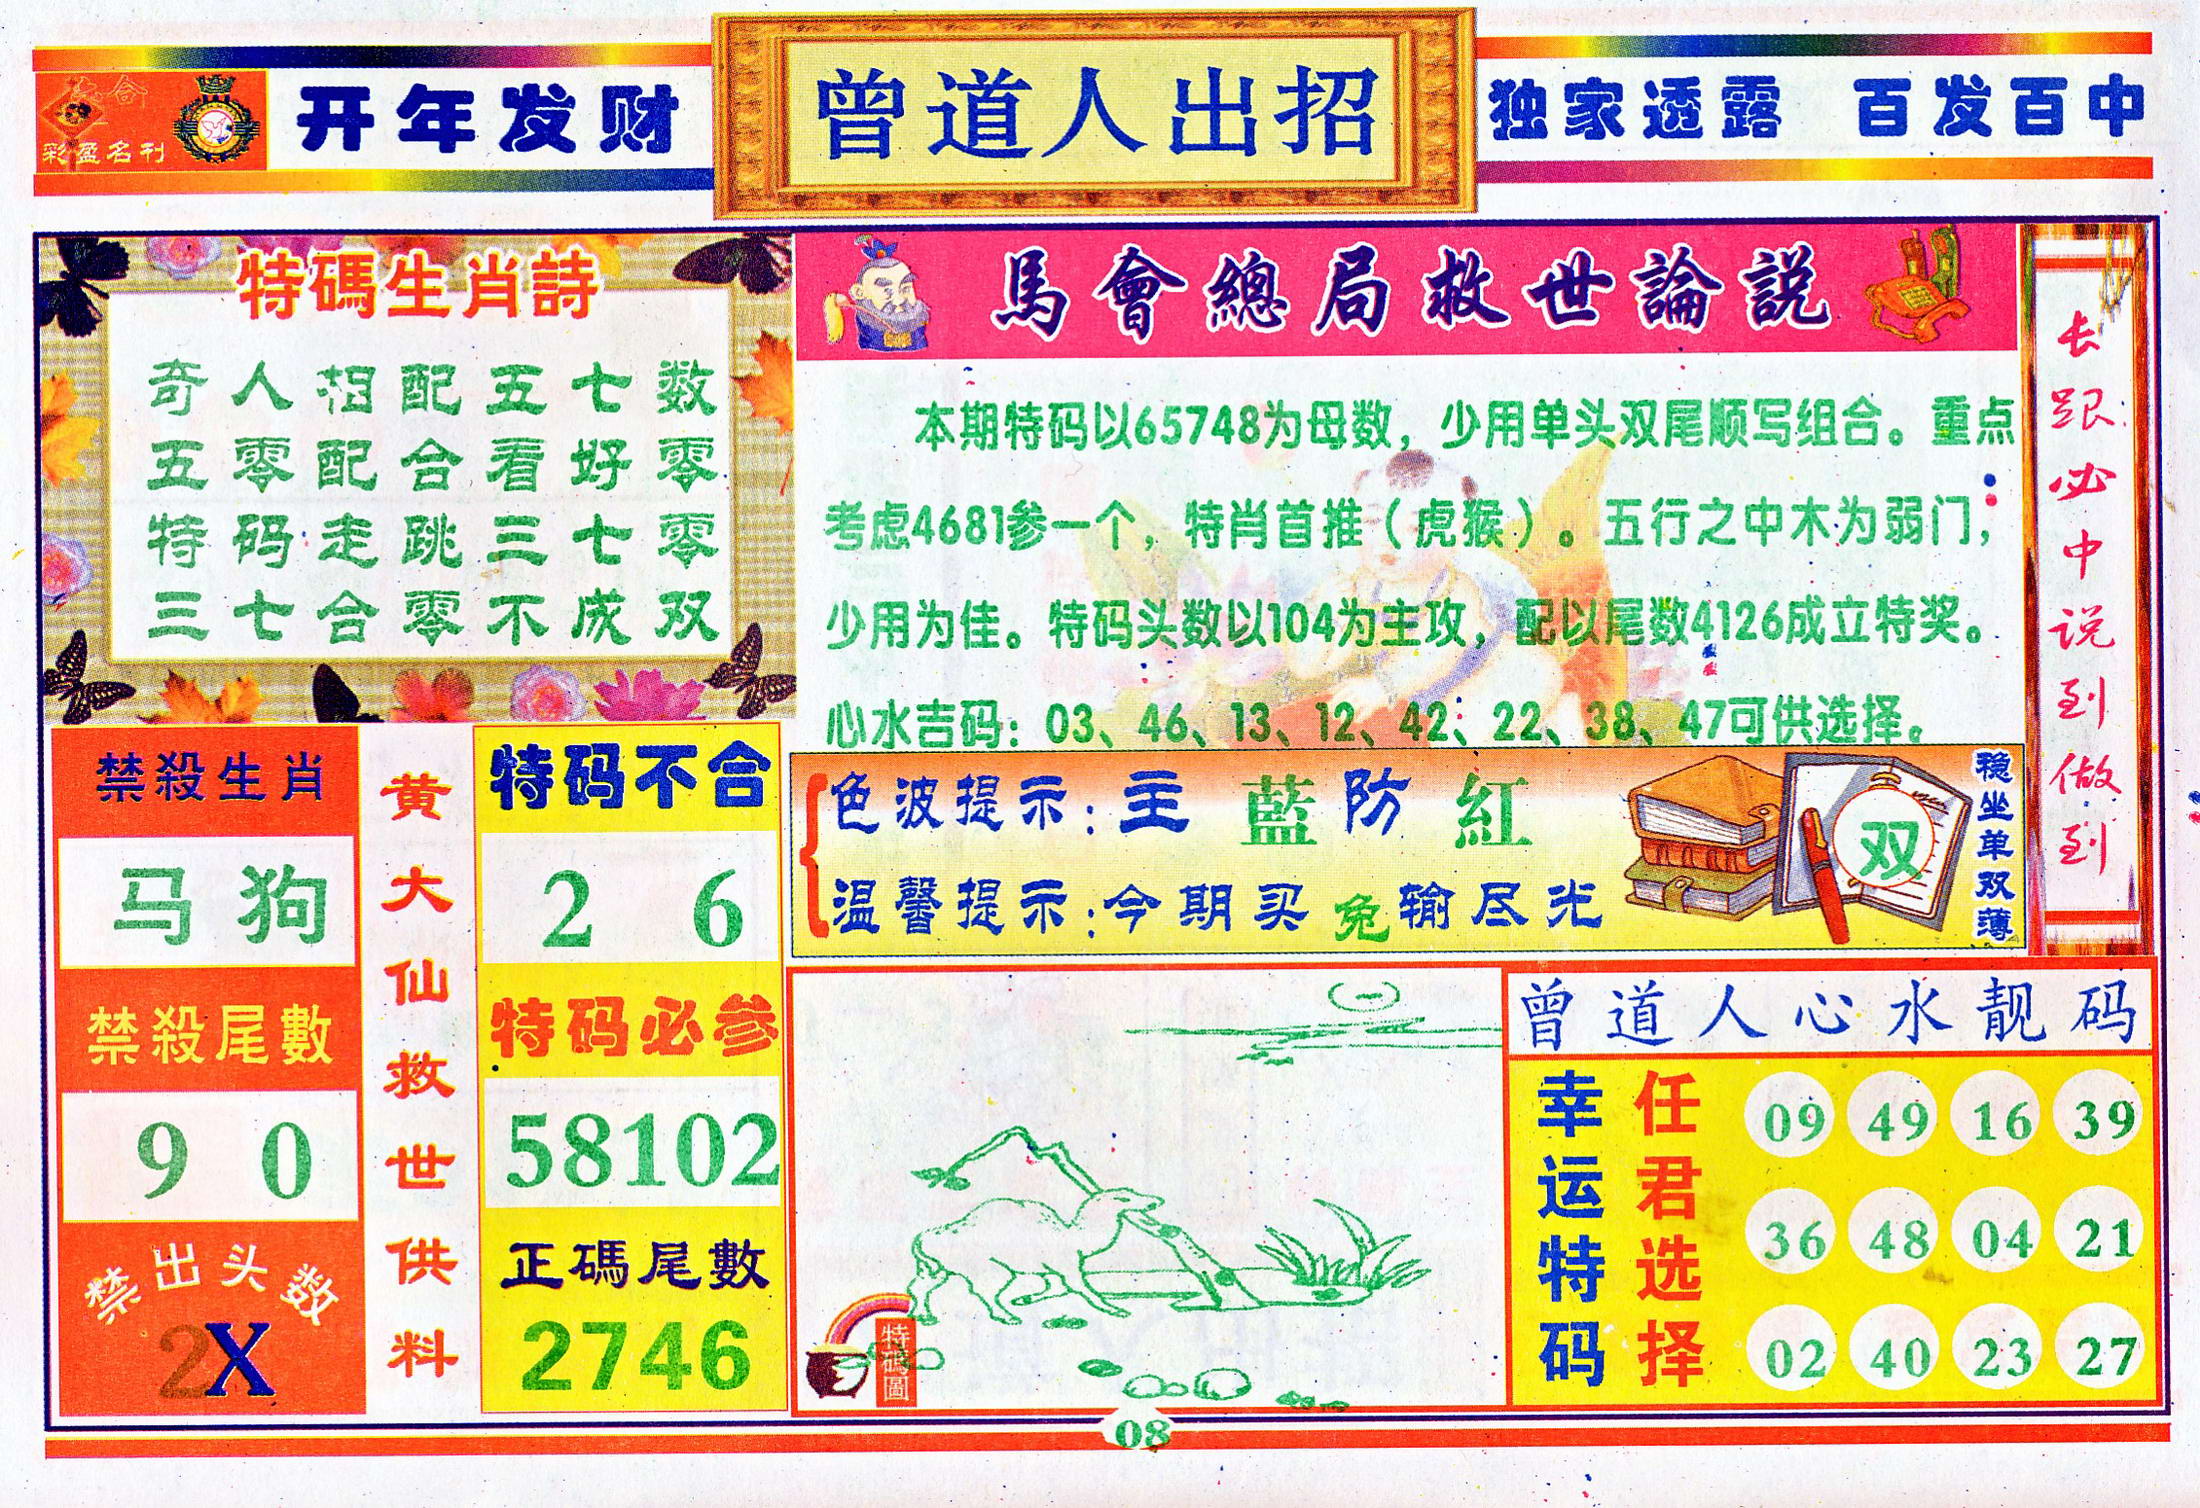 彩盈名刊
开年发财
曾道人出招
独家透露 百发百中
特碼生肖詩
奇人相配五七数
五零配合看好零
特码走跳三七零
三七合零不成双
馬會總局救世論説
本期特码以65748为母数，少用单头双尾顺写组合。重点
考虑4681参一个，特肖首推（虎猴）。五行之中木为弱门，
少用为佳。特码头数以104为主攻，配以尾数4126成立特奖。
心水吉码：03、46、13、12、42、22、38、47可供选择。
长跟必中说到做到
禁殺生肖
马 狗
禁殺尾數
9 0
禁出头数
2X
黄大仙救世供料
特码不合
2 6
特码必参
58102
正碼尾數
2746
色波提示：主 藍 防 紅
温馨提示：今期买兔输尽光
双
稳坐单双薄
特碼圖
曾道人心水靓码
幸运特码
任君选择
09 49 16 39
36 48 04 21
02 40 23 27
08